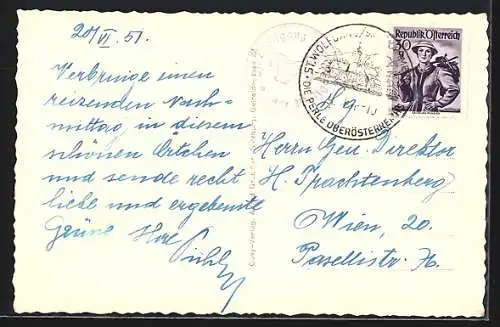 20/VI. 51.
Verbringe einen
reizenden Nach-
mittag in diesem
schönen Örtchen
und sende recht
liebe und ergebenste
Grüsse Ihre
ST. WOLFGANG
DIE PERLE OBERÖSTERREICHS
Republik Österreich
30
Herrn Gen. Direktor
H. Trachtenberg
Wien, 20.